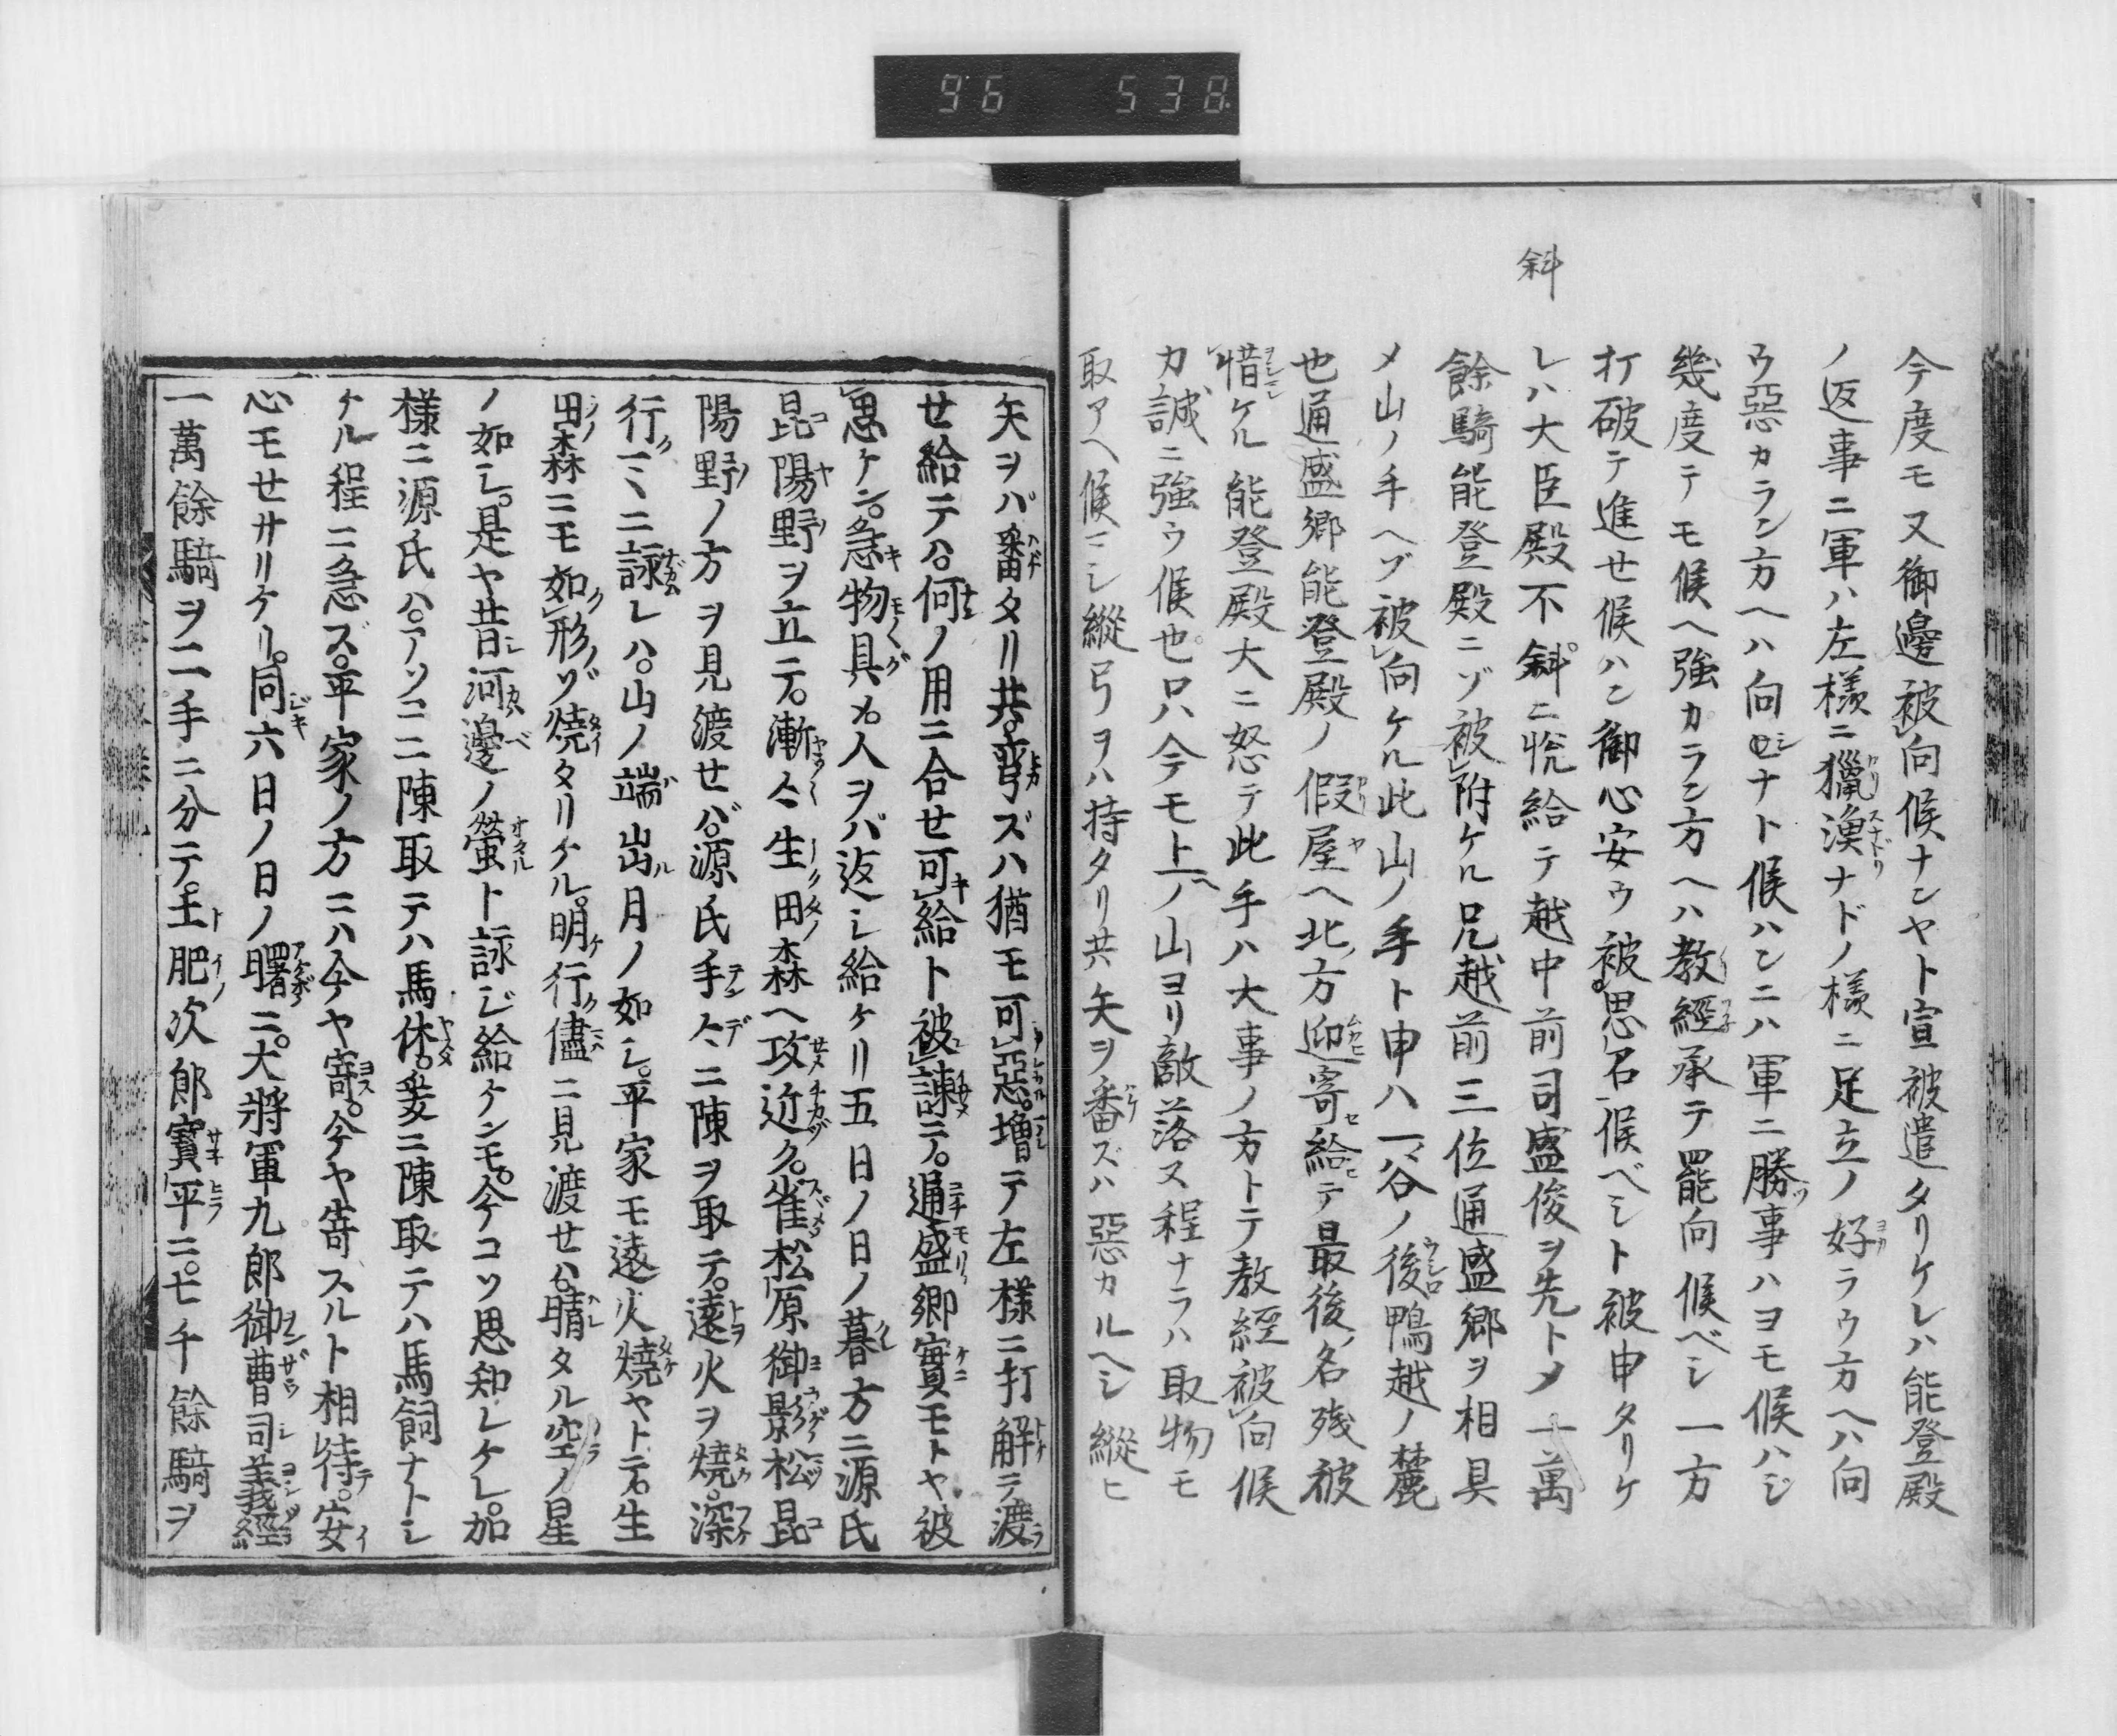 96 538
斜
今度モ又御邊被向候ナンヤト宣被遣タリケレハ能登殿
ノ返事ニ軍ハ左樣ニ獵漁ナドノ樣ニ足立ノ好ラウ方ヘハ向
ウ惡カラン方ヘハ向ロナト候ハンニハ軍ニ勝事ハヨモ候ハジ
幾度テモ候ヘ強カラン方ヘハ教經承テ罷向候ベシ一方
打破テ進せ候ハン御心安ウ被思名候ベシト被申タリケ
レハ大臣殿不斜ニ悦給テ越中前司盛俊ヲ先トメ一萬
餘騎能登殿ニゾ被附ケル兄越前三位通盛郷ヲ相具
メ山ノ手ヘゾ被向ケル此山ノ手ト申ハ一谷ノ後鴨越ノ麓
也通盛郷能登殿ノ假屋ヘ北方迎寄給テ最後名殘被
惜ケル能登殿大ニ怒テ此手ハ大事ノ方トテ教經被向候
カ誠ニ強ウ候也只今モ上ノ山ヨリ敵落ス程ナラハ取物モ
取アヘ候マシ縱弓ヲハ持タリ共矢ヲ番ズハ惡カルヘシ縱ヒ
矢ヲバ番タリ共彎ズハ猶モ可惡増テ左樣ニ打解テ渡
せ給テハ何ノ用ニ合せ可給ト被諫ニテ通盛卿實モトヤ被
思ケン急物具メ人ヲバ返シ給ケリ五日ノ日ノ暮方ニ源氏
昆陽野ヲ立テ漸々生田森ヘ攻近ク雀松原御影松昆
陽野ノ方ヲ見渡せバ源氏手々ニ陳ヲ取テ遠火ヲ燒深
行マヽニ詠レハ山ノ端出月ノ如シ平家モ遠火燒ヤトテ生
田森ニモ如形ゾ燒タリケル明行儘ニ見渡せハ晴タル空ノ星
ノ如シ是ヤ昔河邊ノ螢ト詠ジ給ケンモ今コソ思知レケレ加
樣ニ源氏ハアソコニ陳取テハ馬休爰ニ陳取テハ馬飼ナトシ
ケル程ニ急ズ平家ノ方ニハ今ヤ寄今ヤ寄スルト相待安
心モせサリケリ同六日ノ日ノ曙ニ大將軍九郎御曹司義經
一萬餘騎ヲ二手ニ分テ土肥次郎實平ニ七千餘騎ヲ